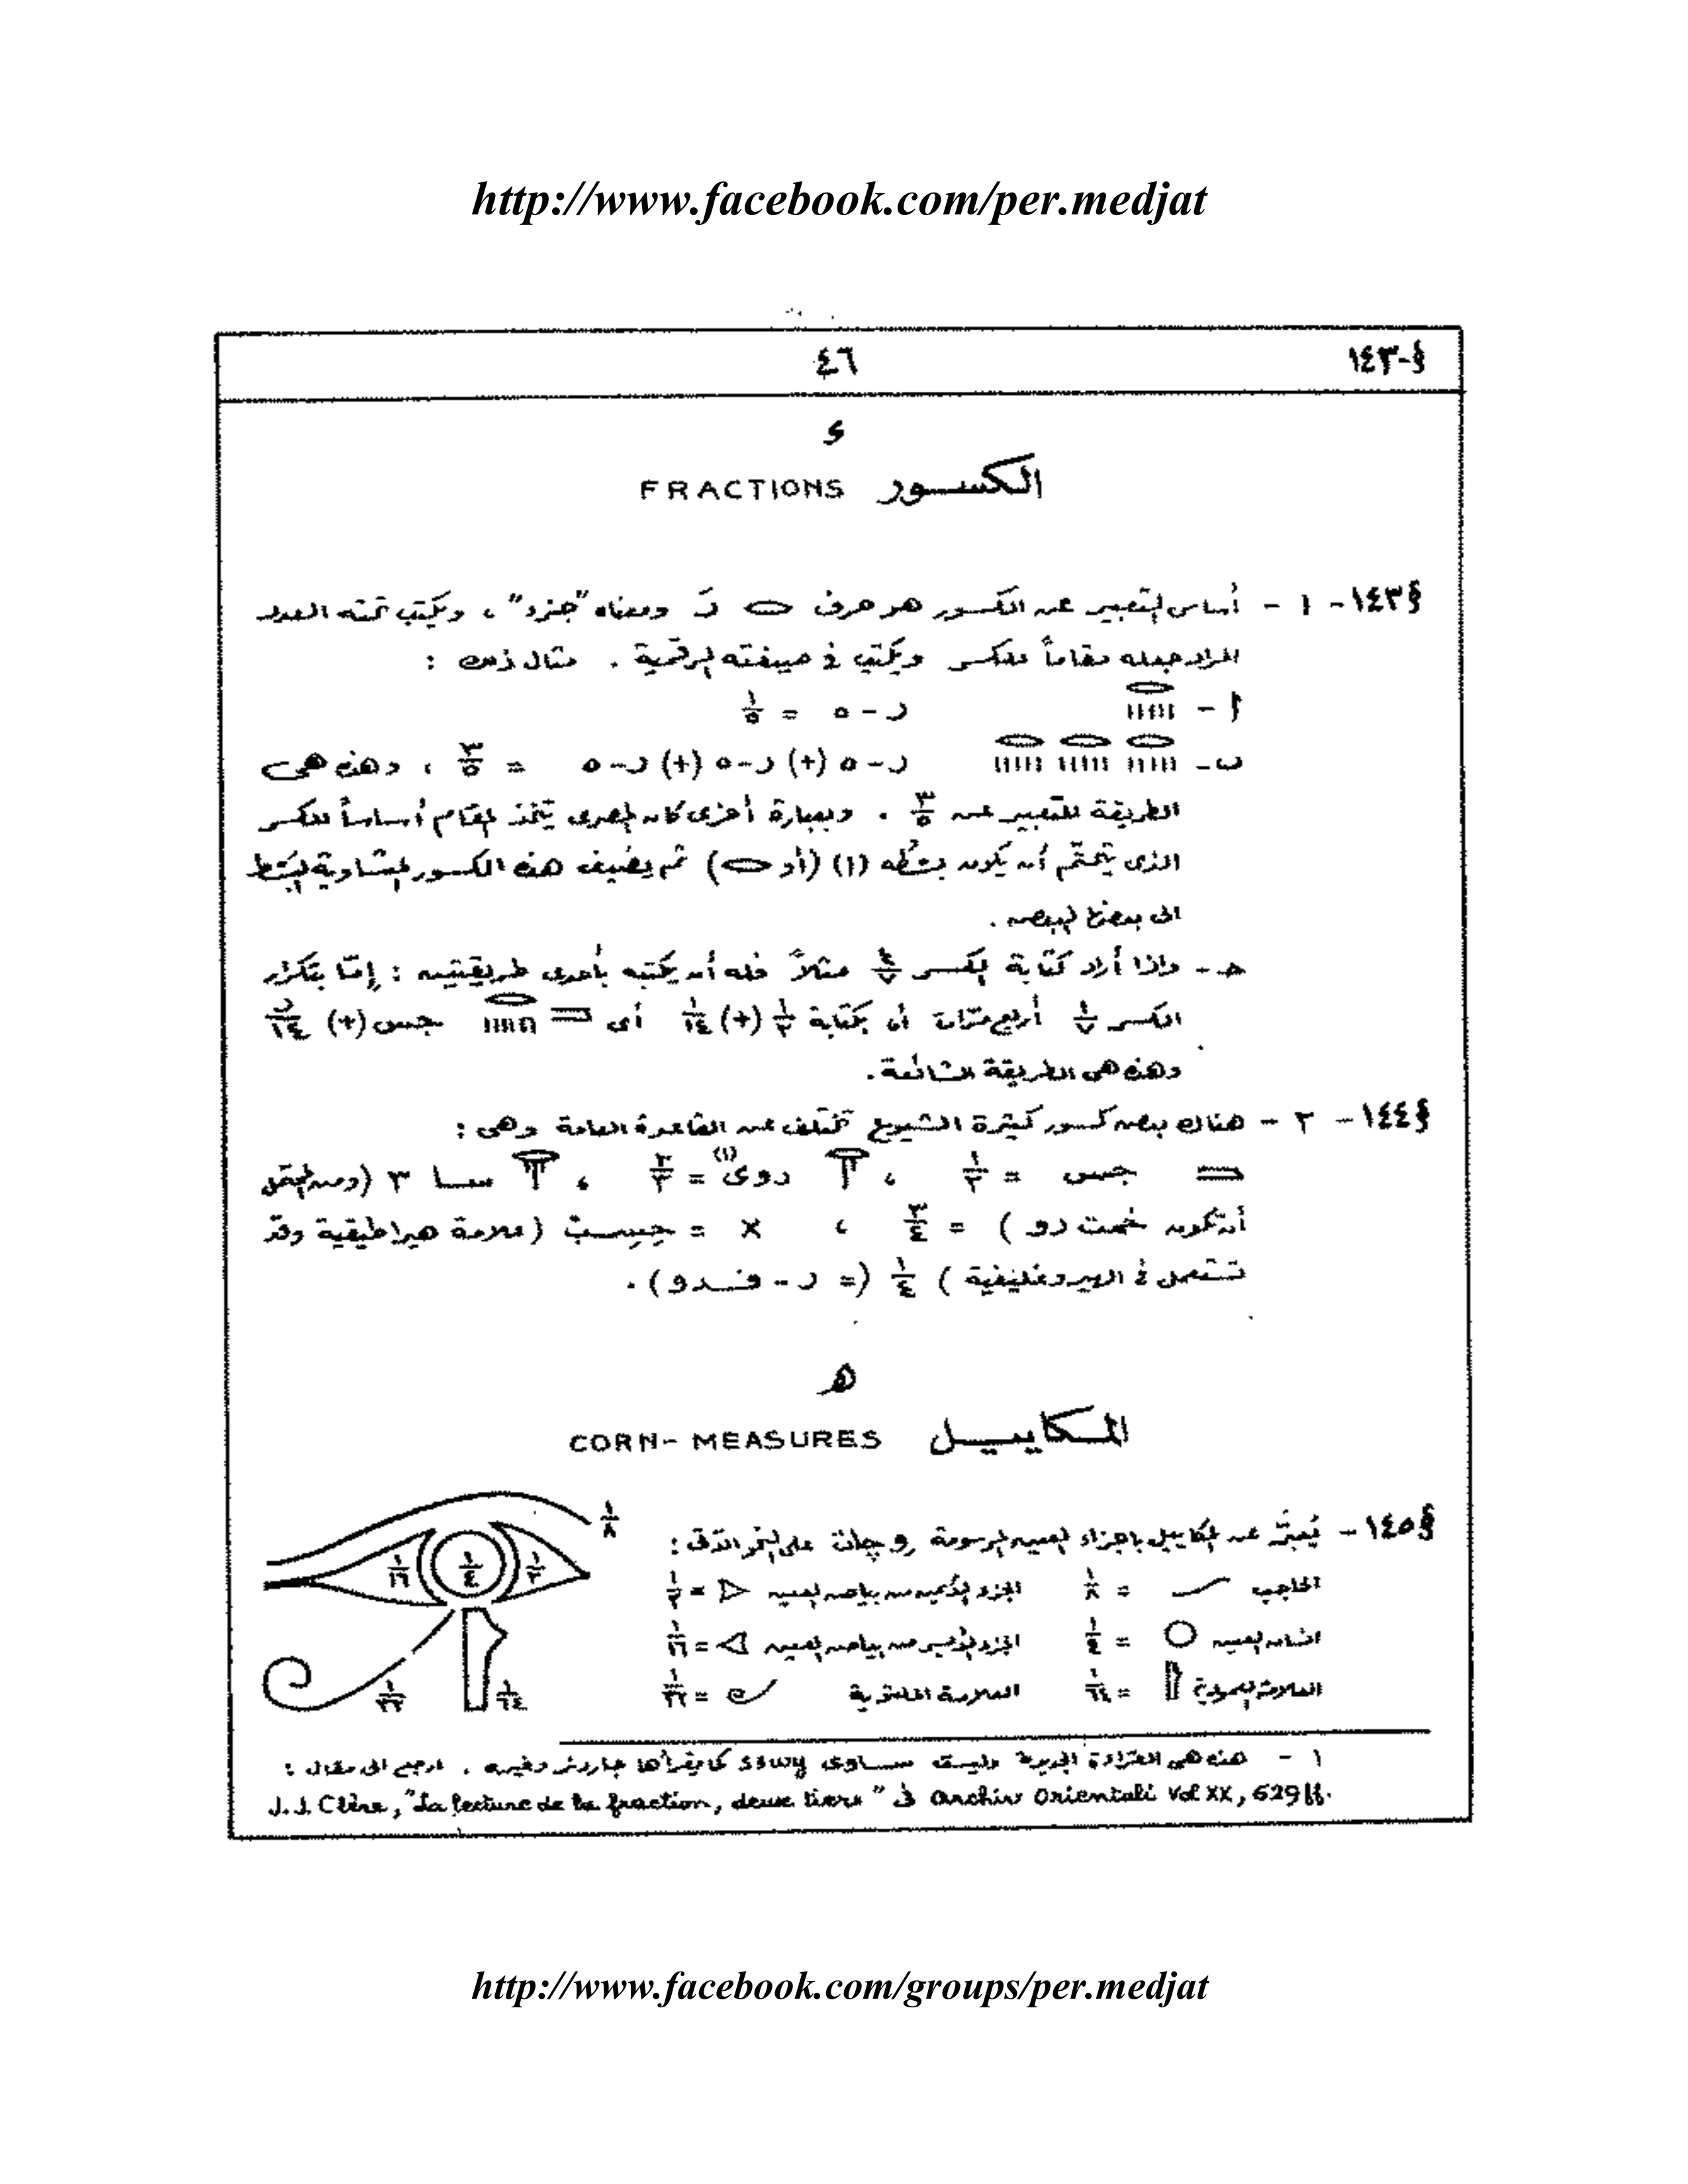 http://www.facebook.com/per.medjat
§-١٤٣ ٤٦
ء
الكسور FRACTIONS
§١٤٣- ١ - أساس التعبير عن الكسور هو حرف رَ ومعناه "جزء" ، ويكتب تحته العدد
المراد جعله مقاماً للكسر ويكتب في صيغته الرقمية . مثال ذلك :
أ - ر - ٥ = ١/٥
ب - ر - ٥ (+) ر - ٥ (+) ر - ٥ = ٣/٥ ، وهذه هى
الطريقة للتعبير عن ٣/٥ . وبعبارة أخرى كان المصرى يتخذ المقام أساساً للكسر
الذى يتحتّم أن يكون بسْطُه (١) (أو ) ثم يضيف هذه الكسور المتساوية البَسْط
الى بعضها البعض .
جـ - واذا أراد كتابة الكسر ٤/٧ مثلاً فله أن يكتبه بأحدى طريقتين : إمّا بتكرار
الكسر ١/٧ أربع مرات أو بكتابة ١/٢ (+) ١/١٤ أى جس (+) ر/١٤
وهذه هى الطريقة الشائعة .
§١٤٤ - ٢ - هناك بعض كسور كثيرة الشيوع تختلف عن القاعدة العامة وهى :
جس = ١/٢ ، روى(١) = ٢/٣ ، ٣ (ومن المحتمل
أن تكون خمت رو ) = ٣/٤ ، x = حِسِب (علامة هيراطيقية وقد
تستعمل فى الهيروغليفية ) ١/٤ (= ر - فدو ) .
ه
المكاييل CORN-MEASURES
§١٤٥ - يُعبَّر عن المكاييل باجزاء العين المرسومة على النحو الآتى :
الحاجب = ١/٨ الجزء الأيمن من بياض العين = ١/٢
انسان العين = ١/٤ الجزء الأيسر من بياض العين = ١/١٦
العلامة العمودية = ١/٦٤ العلامة الملتوية = ١/٣٢
١/٨
١/١٦ ١/٤ ١/٢
١/٣٢ ١/٦٤
١ - هذه هى القراءة الجديدة وليست ساوى sswy كما يقرأها جاردنر وغيره . ارجع الى مقال :
J. J. Clère, "La lecture de la fraction, deux tiers" فى Archiv Orientali Vol XX, 629 ff.
http://www.facebook.com/groups/per.medjat